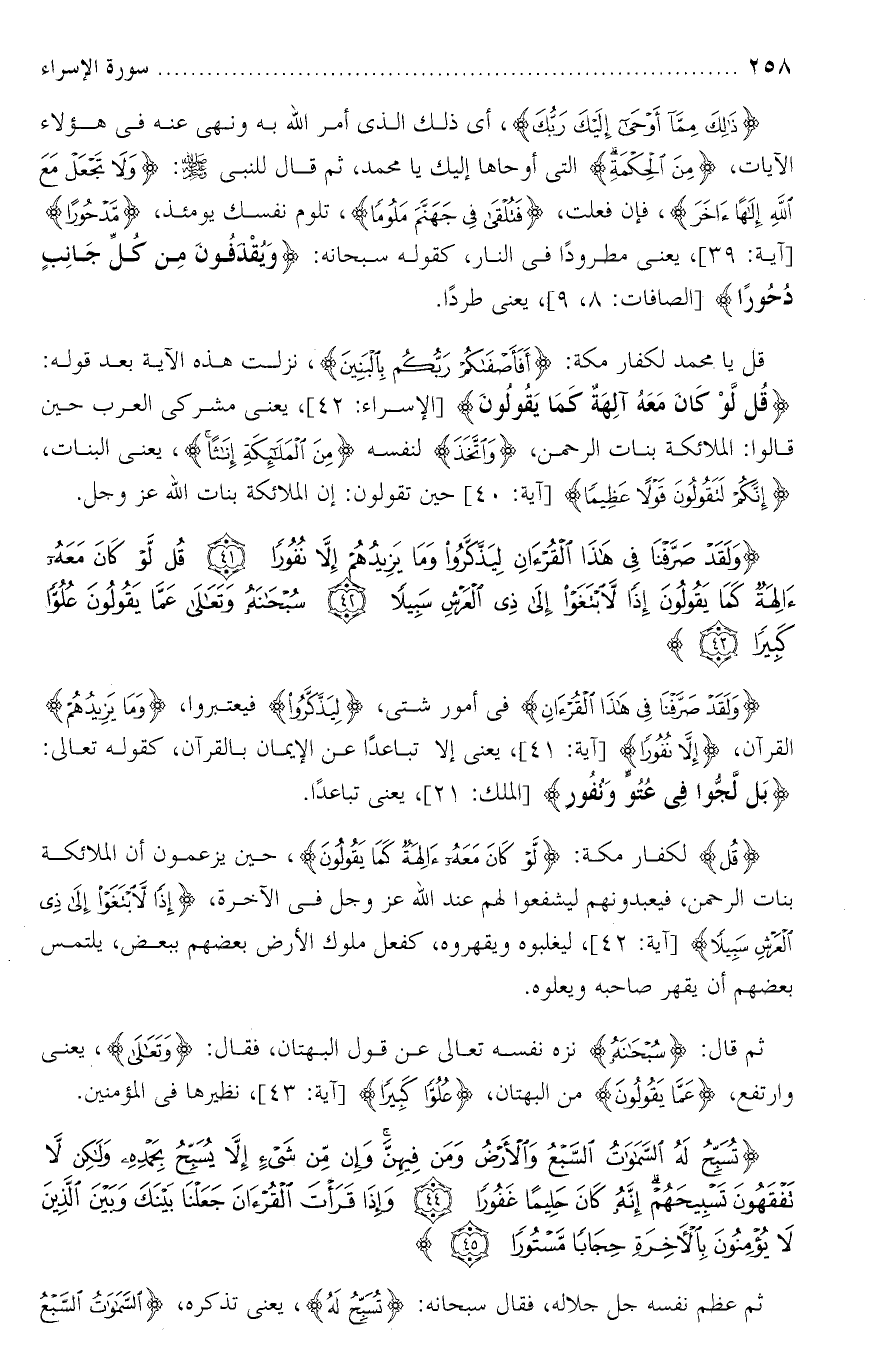 ٢٥٨ ...................................................................... سورة الإسراء
﴿ذَٰلِكَ مِمَّآ أَوْحَىٰٓ إِلَيْكَ رَبُّكَ﴾، أى ذلك الذى أمر الله به ونهى عنه فى هؤلاء
الآيات، ﴿مِنَ ٱلْحِكْمَةِۗ﴾ التى أوحاها إليك يا محمد، ثم قال للنبى ﷺ: ﴿وَلَا تَجْعَلْ مَعَ
ٱللَّهِ إِلَٰهًا ءَاخَرَ﴾، فإن فعلت، ﴿فَتُلْقَىٰ فِى جَهَنَّمَ مَلُومًا﴾، تلوم نفسك يومئذ، ﴿مَّدْحُورًا﴾
[آية: ٣٩]، يعنى مطرودًا فى النار، كقوله سبحانه: ﴿وَيُقْذَفُونَ مِن كُلِّ جَانِبٍ
دُحُورًا﴾ [الصافات: ٨، ٩]، يعنى طردًا.
قل يا محمد لكفار مكة: ﴿أَفَأَصْفَىٰكُمْ رَبُّكُم بِٱلْبَنِينَ﴾، نزلت هذه الآية بعد قوله:
﴿قُل لَّوْ كَانَ مَعَهُ آلِهَةٌ كَمَا يَقُولُونَ﴾ [الإسراء: ٤٢]، يعنى مشركى العرب حين
قالوا: الملائكة بنات الرحمن، ﴿وَٱتَّخَذَ﴾ لنفسه ﴿مِنَ ٱلْمَلَٰٓئِكَةِ إِنَٰثًاۚ﴾، يعنى البنات،
﴿إِنَّكُمْ لَتَقُولُونَ قَوْلًا عَظِيمًا﴾ [آية: ٤٠] حين تقولون: إن الملائكة بنات الله عز وجل.
﴿وَلَقَدْ صَرَّفْنَا فِى هَٰذَا ٱلْقُرْءَانِ لِيَذَّكَّرُوا۟ وَمَا يَزِيدُهُمْ إِلَّا نُفُورًا ٤١ قُل لَّوْ كَانَ مَعَهُۥٓ
ءَالِهَةٌ كَمَا يَقُولُونَ إِذًا لَّٱبْتَغَوْا۟ إِلَىٰ ذِى ٱلْعَرْشِ سَبِيلًا ٤٢ سُبْحَٰنَهُۥ وَتَعَٰلَىٰ عَمَّا يَقُولُونَ عُلُوًّا
كَبِيرًا ٤٣ ﴾
﴿وَلَقَدْ صَرَّفْنَا فِى هَٰذَا ٱلْقُرْءَانِ﴾ فى أمور شتى، ﴿لِيَذَّكَّرُوا۟﴾ فيعتبروا، ﴿وَمَا يَزِيدُهُمْ﴾
القرآن، ﴿إِلَّا نُفُورًا﴾ [آية: ٤١]، يعنى إلا تباعدًا عن الإيمان بالقرآن، كقوله تعالى:
﴿بَل لَّجُّوا فِى عُتُوٍّ وَنُفُورٍ﴾ [الملك: ٢١]، يعنى تباعدًا.
﴿قُل﴾ لكفار مكة: ﴿لَّوْ كَانَ مَعَهُۥٓ ءَالِهَةٌ كَمَا يَقُولُونَ﴾، حين يزعمون أن الملائكة
بنات الرحمن، فيعبدونهم ليشفعوا لهم عند الله عز وجل فى الآخرة، ﴿إِذًا لَّٱبْتَغَوْا۟ إِلَىٰ ذِى
ٱلْعَرْشِ سَبِيلًا﴾ [آية: ٤٢]، ليغلبوه ويقهروه، كفعل ملوك الأرض بعضهم ببعض، يلتمس
بعضهم أن يقهر صاحبه ويعلوه.
ثم قال: ﴿سُبْحَٰنَهُۥ﴾ نزه نفسه تعالى عن قول البهتان، فقال: ﴿وَتَعَٰلَىٰ﴾، يعنى
وارتفع، ﴿عَمَّا يَقُولُونَ﴾ من البهتان، ﴿عُلُوًّا كَبِيرًا﴾ [آية: ٤٣]، نظيرها فى المؤمنين.
﴿تُسَبِّحُ لَهُ ٱلسَّمَٰوَٰتُ ٱلسَّبْعُ وَٱلْأَرْضُ وَمَن فِيهِنَّۚ وَإِن مِّن شَىْءٍ إِلَّا يُسَبِّحُ بِحَمْدِهِۦ وَلَٰكِن لَّا
تَفْقَهُونَ تَسْبِيحَهُمْۗ إِنَّهُۥ كَانَ حَلِيمًا غَفُورًا ٤٤ وَإِذَا قَرَأْتَ ٱلْقُرْءَانَ جَعَلْنَا بَيْنَكَ وَبَيْنَ ٱلَّذِينَ
لَا يُؤْمِنُونَ بِٱلْءَاخِرَةِ حِجَابًا مَّسْتُورًا ٤٥ ﴾
ثم عظم نفسه جل جلاله، فقال سبحانه: ﴿تُسَبِّحُ لَهُ﴾، يعنى تذكره، ﴿ٱلسَّمَٰوَٰتُ ٱلسَّبْعُ